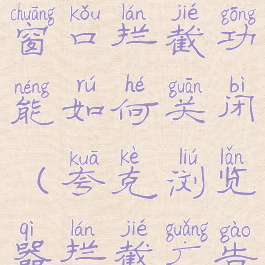 chuāng kǒu lán jié gōng
窗口拦截功
néng rú hé guān bì
能如何关闭
kuā kè liú lǎn
（夸克浏览
qì lán jié guǎng gào
器拦截广告